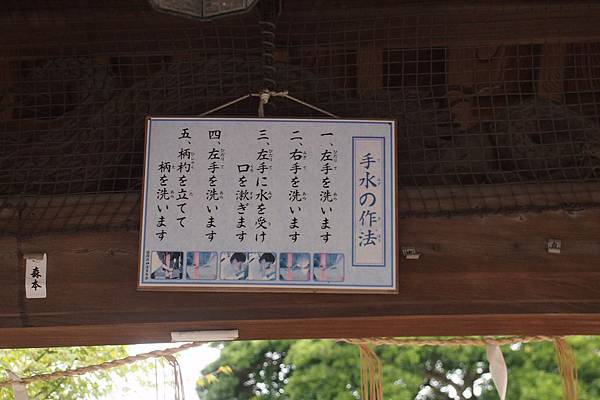 手水の作法
一、左手を洗います
二、右手を洗います
三、左手に水を受け
口を漱ぎます
四、左手を洗います
五、柄杓を立てて
柄を洗います
森本